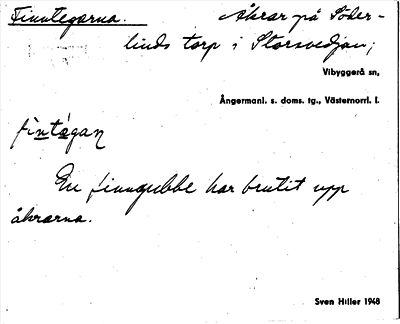 Finntegarna. Åkrar på Söder-
linds torp i Storsvedjan;
Vibyggerå sn,
Ångermanl. s. doms. tg., Västernorrl. l.
fìntégan
En finngubbe har brutit upp
åkrarna.
Sven Hiller 1948